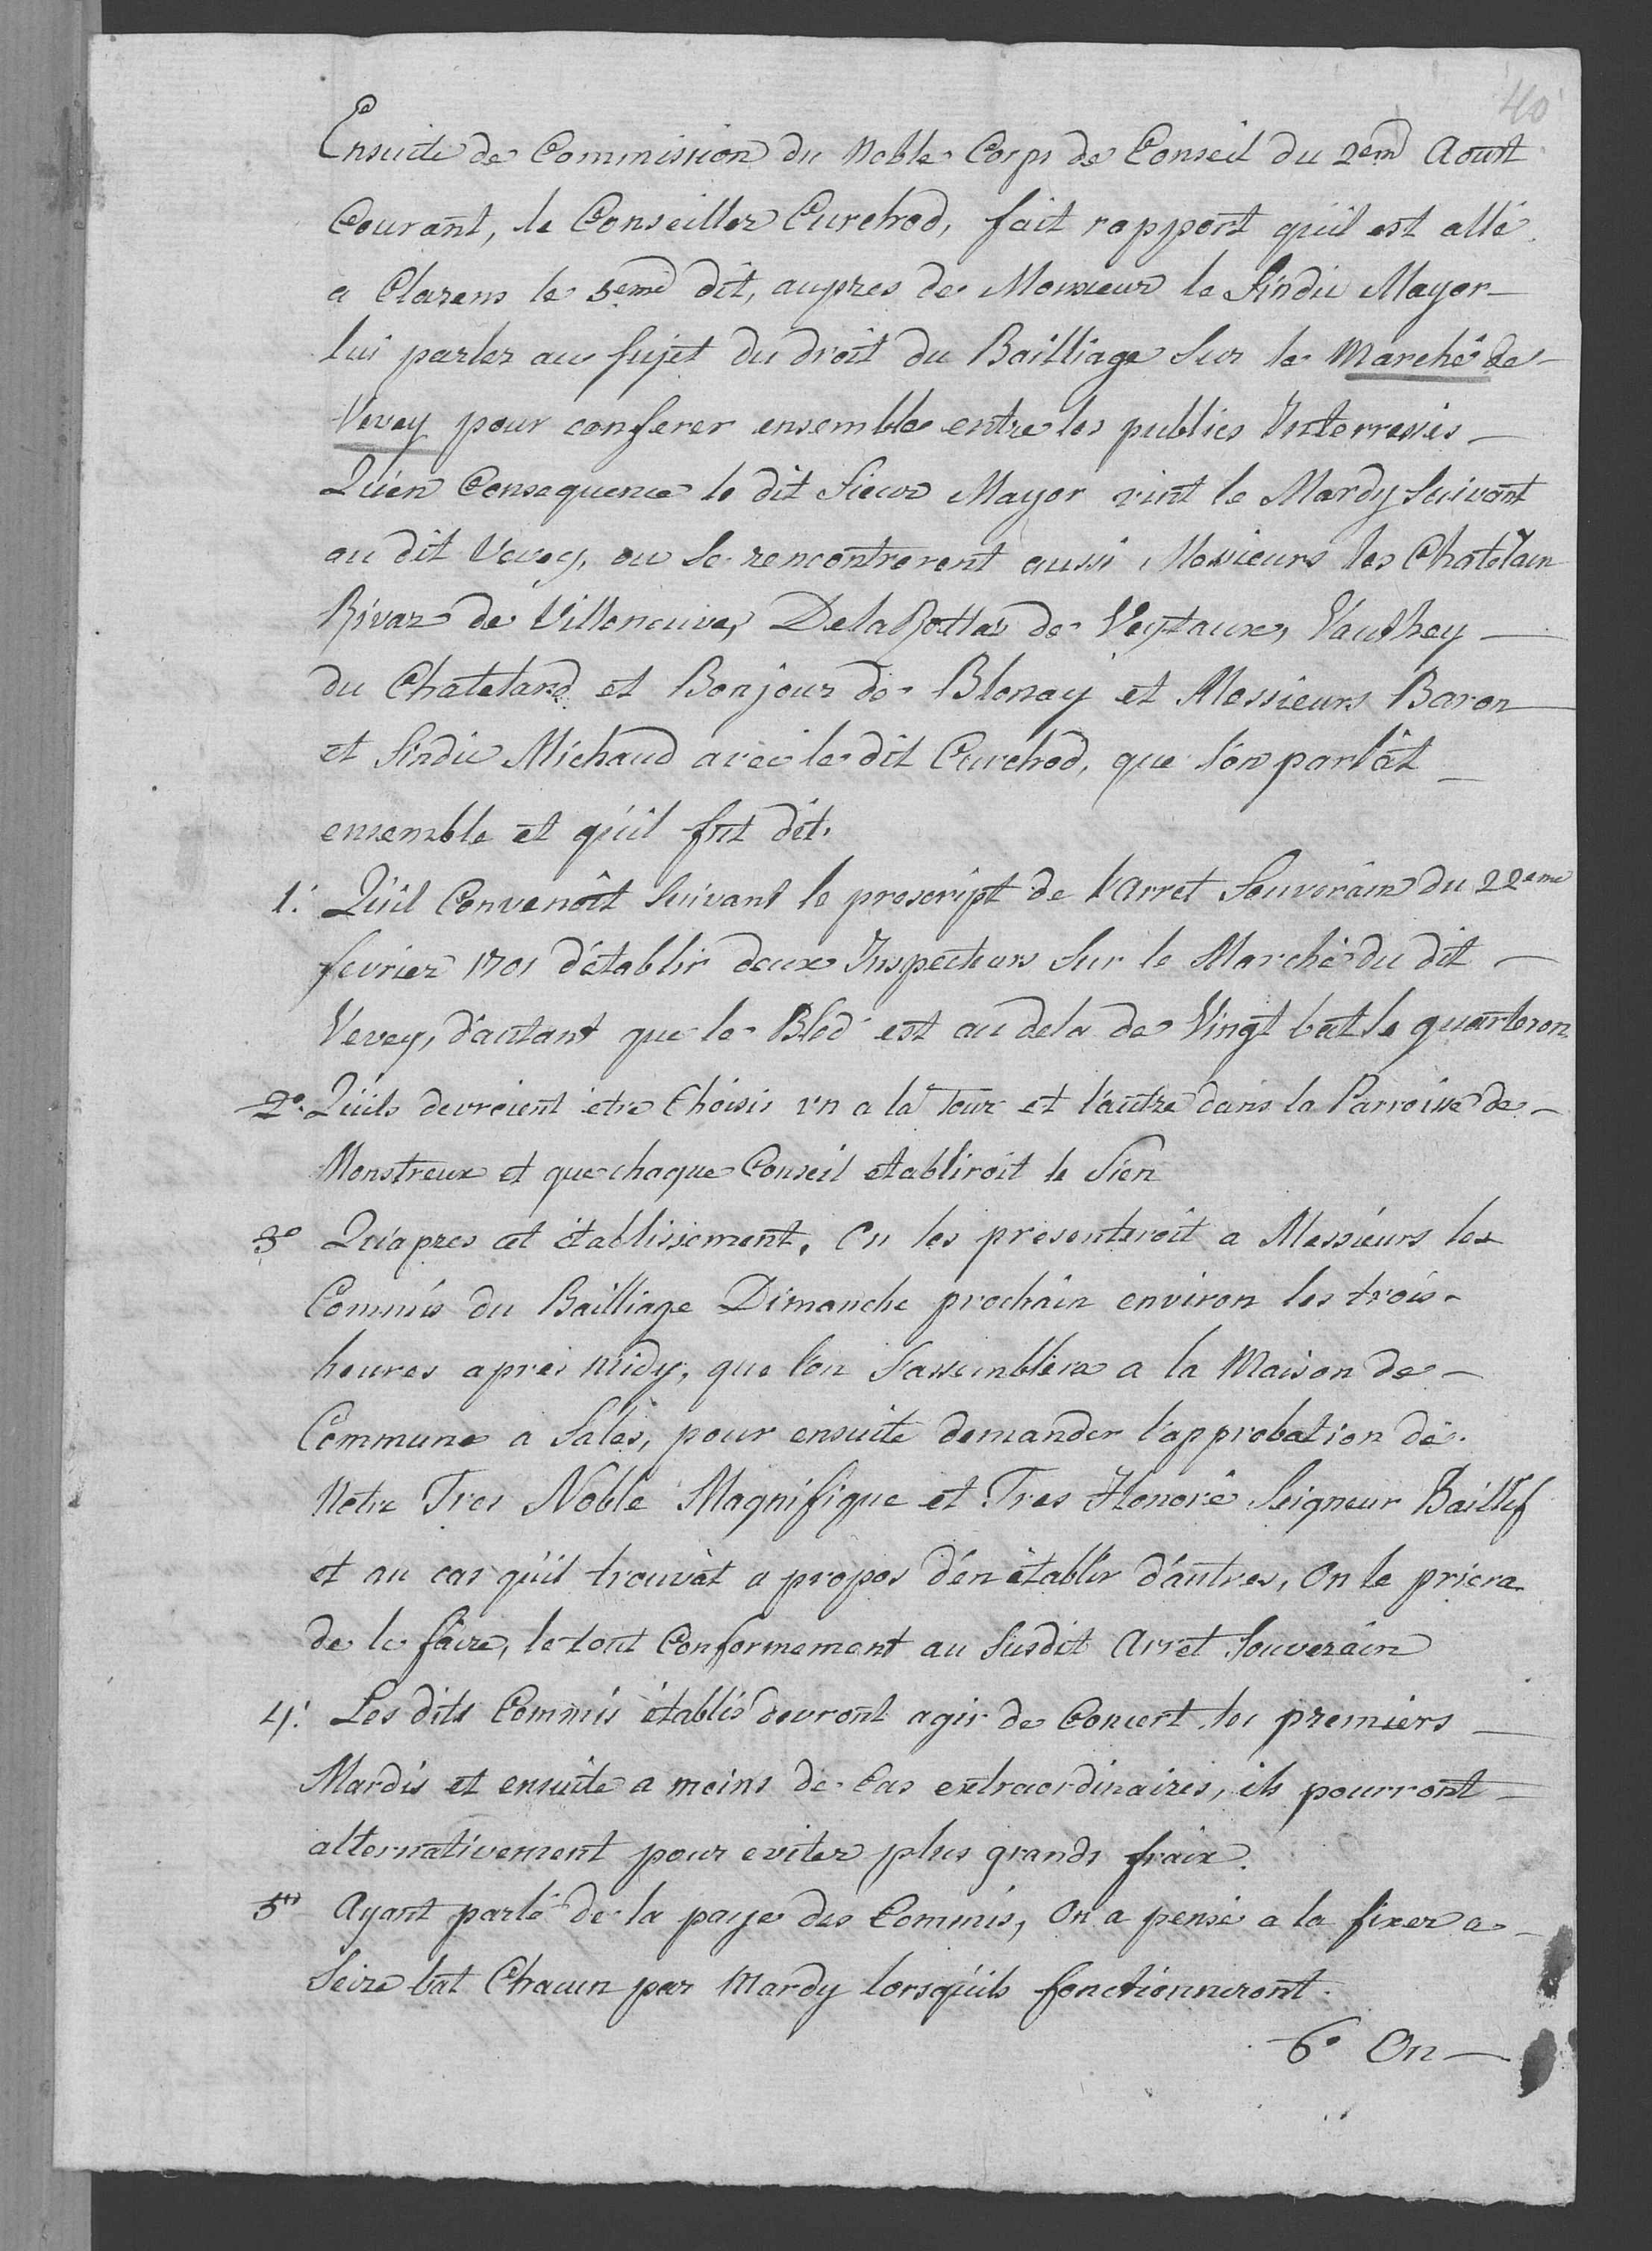 40
Ensuite de Commission du Noble Corps de Conseil du 2em Aoust
Courant, le Conseiller Curchod, fait rapport qu'il est allé
a Clarens le 5eme dit, aupres de Monsieur le Sindic Mayor
lui parler au sujet du droit du Bailliage sur le Marché de
Vevey pour conferer ensemble entre les publics Interressés
Qu'en Consequence le dit Sieur Mayor vint le Mardy suivant
au dit Vevey, ou se rencontrerent aussi Messieurs les Chatelain
Rivaz de Villeneuve, DelaRottaz de Veytaux, Vauthey
du Chatelard et Bonjour de Blonay et Messieurs Baron
et Sindic Michaud avec le dit Curchod, que l'on parlât
ensemble et qu'il fut dit.
1. Qu'il Convenoit suivant le prescript de l'Arret Souverain du 22eme
fevrier 1701 d'établir deux Inspecteurs sur le Marché du dit
Vevey, d'autant que le Bled est au dela de Vingt bat le quarteron
2° Qu'ils devroient etre Choisis un a la Tour et l'autre dans la Parroisse de
Monstreux et que chaque Conseil etabliroit le Sien
3° Qu'apres cet établissement, On les presenteroit a Messieurs les
Commis du Bailliage Dimanche prochain environ les trois
heures apres midy, que l'on s'assemblera a la Maison de
Commune a Sales, pour ensuite demander l'approbation de
Notre Tres Noble Magnifique et Tres Honoré Seigneur Baillif
et au cas qu'il trouvât a propos d'en établir d'autres, On le priera
de le faire, le tout Conformement au susdit Arret Souverain
4. Les dits Commis établis devront agir de Concert les premiers
Mardis et ensuite a moins de Cas extraordinaires, ils pourront
alternativement pour eviter plus grands fraix.
5° Ayant parlé de la paye des Commis, On a pensé a la fixer a
Seize bat Chacun par Mardy lorsqu'ils fonctionneront.
6° On